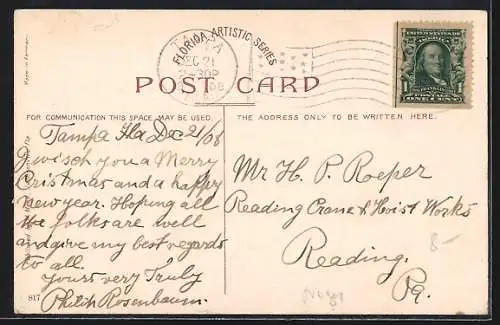 FLORIDA ARTISTIC SERIES
TAMPA
DEC 21
2-30P
POST CARD
UNITED STATES OF AMERICA
1 1
POSTAGE
ONE CENT
FOR COMMUNICATION THIS SPACE MAY BE USED.
THE ADDRESS ONLY TO BE WRITTEN HERE.
Tampa Fla Dec 21/08
I wisch you a Merry
Cristmas and a happy
new year. Hoping all
the folks are well
and give my best regards
to all.
Yours very Truly
Philip Rosenbaum.
Mr H. P. Roeper
Reading Crane & Hoist Works
Reading.
Pa.
8-
817